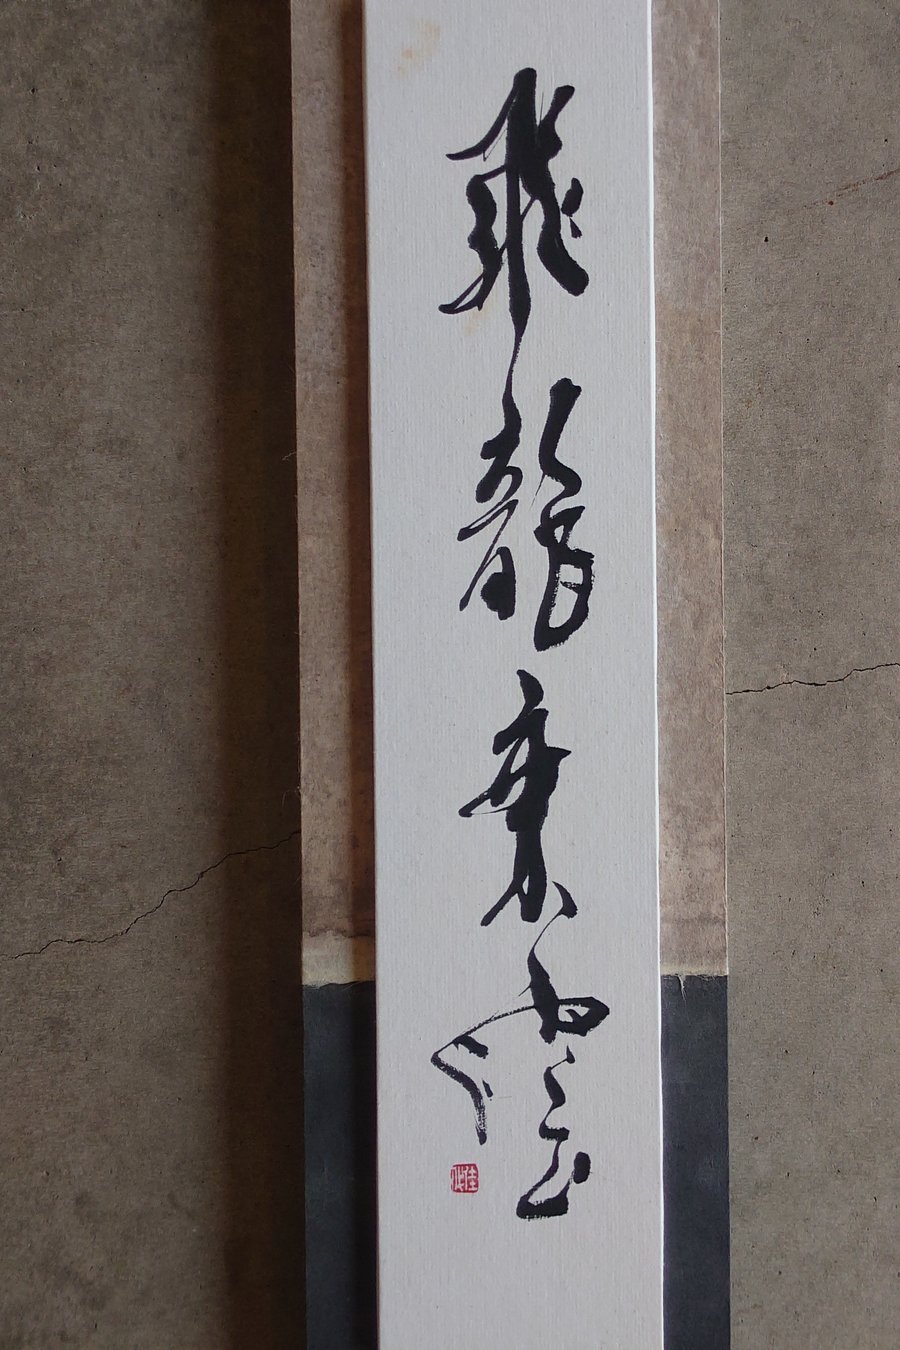 飛龍乗雲